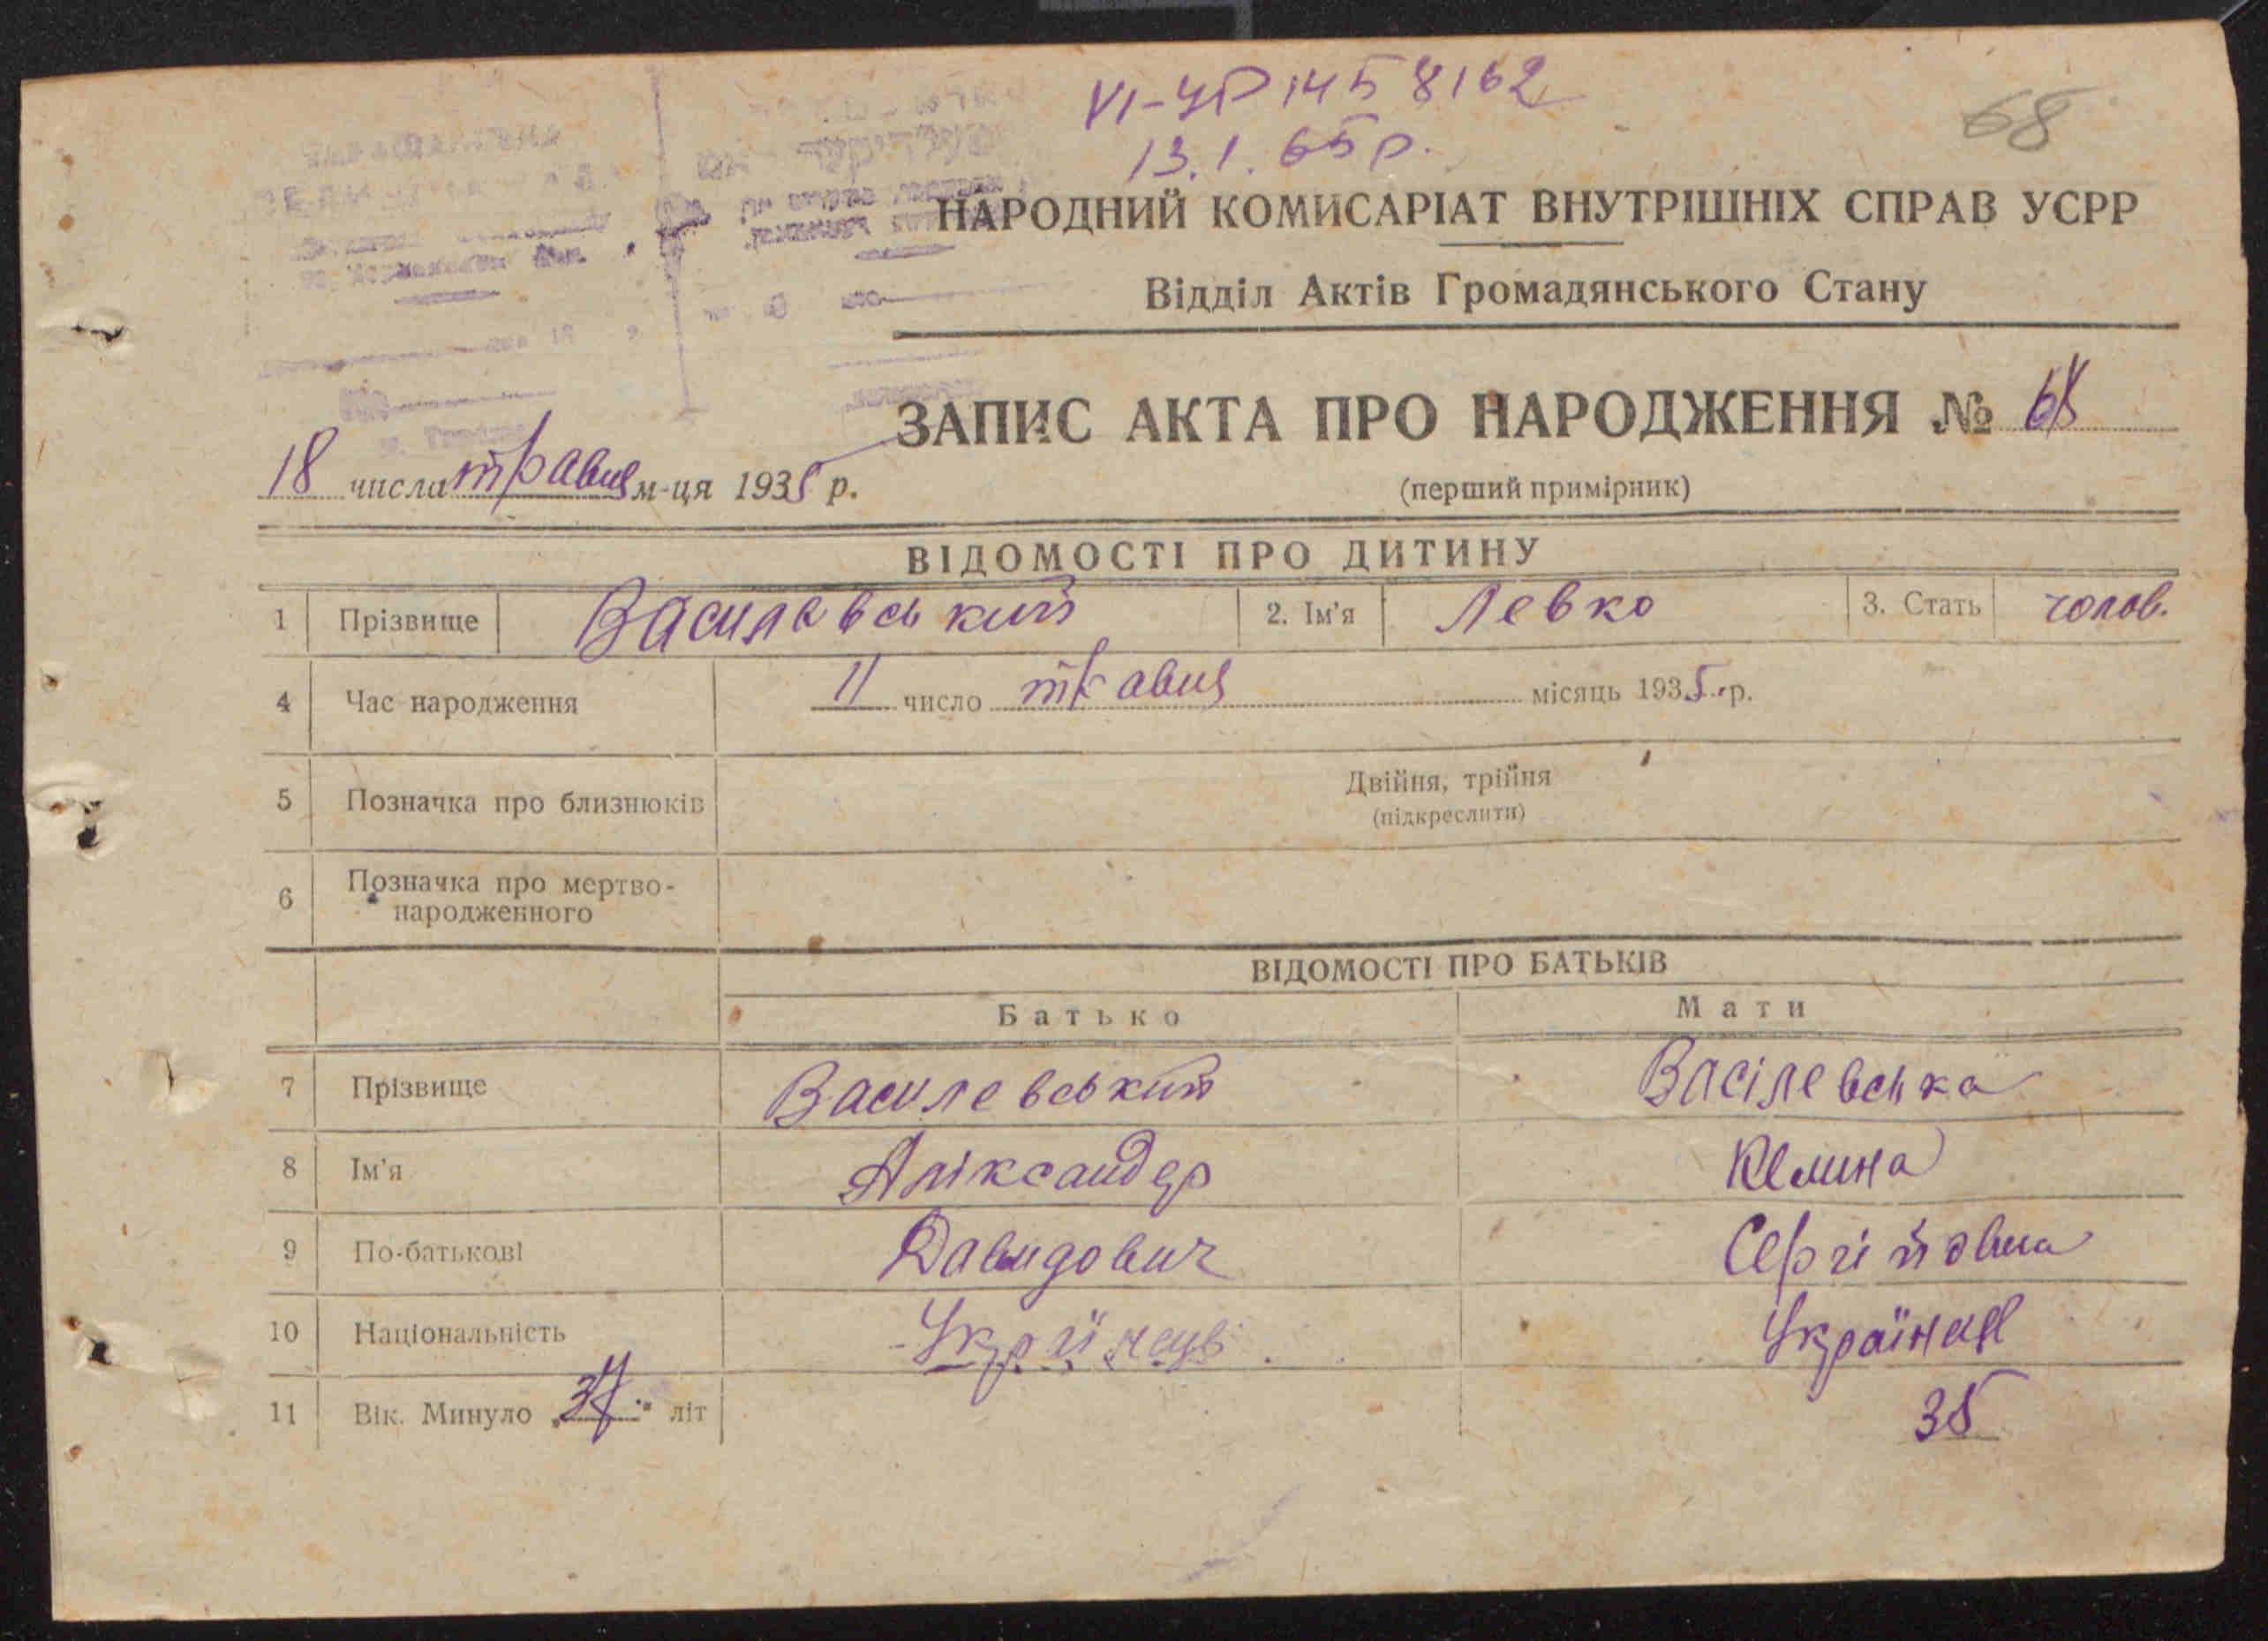 VI-УР 1458162
13.1.65р.
68
НАРОДНИЙ КОМИСАРІАТ ВНУТРІШНІХ СПРАВ УСРР
Відділ Актів Громадянського Стану
ЗАПИС АКТА ПРО НАРОДЖЕННЯ № 68
18 числа травня м-ця 1935 р.
(перший примірник)
ВІДОМОСТІ ПРО ДИТИНУ
1 Прізвище Василевський 2. Ім'я Левко 3. Стать чолов.
4 Час народження 11 число травня місяць 1935 р.
5 Позначка про близнюків Двійня, трійня
(підкреслити)
6 Позначка про мертво-
народженного
ВІДОМОСТІ ПРО БАТЬКІВ
Батько Мати
7 Прізвище Василевський Васілевська
8 Ім'я Аліксандер
9 По-батькові Давидович Сергійовна
10 Національність Українець Українка
11 Вік. Минуло "37" літ 35